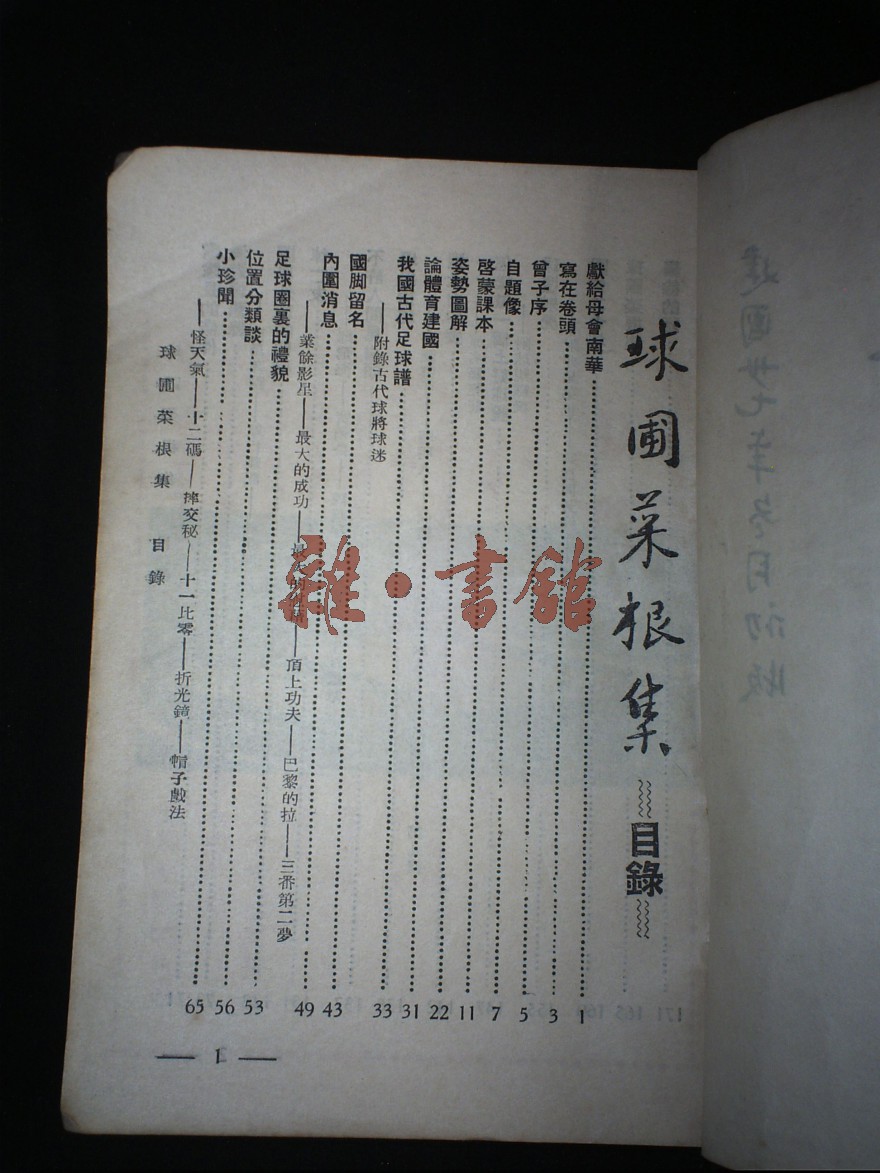 球圃菜根集 目錄
獻給母會南華 1
寫在卷頭 3
曾子序 5
自題像 7
啓蒙課本 11
姿勢圖解 22
論體育建國 31
我國古代足球譜 33
附錄古代球將球迷
國脚留名 43
內圍消息 49
——業餘影星——最大的成功——頂上功夫——巴黎的拉——三番第二夢
足球圈裏的禮貌 53
位置分類談 56
小珍聞 65
——怪天氣——十二碼——摔交秘——十一比零——折光鏡——帽子戲法
球圃菜根集 目錄
— 1 —
雜·書館